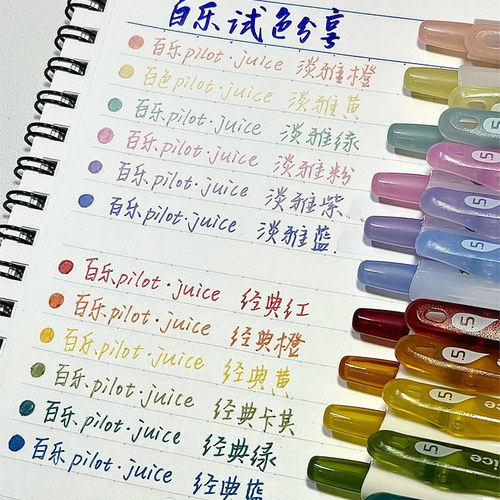 百乐试色分享
百乐pilot·juice 淡雅橙
百色pilot·juice 淡雅黄
百乐pilot·juice 淡雅绿
百乐pilot·juice 淡雅粉
百乐pilot·juice 淡雅紫
百乐pilot·juice 淡雅蓝
百乐pilot·juice 经典红
百乐pilot·juice 经典橙
百乐pilot·juice 经典黄
百乐pilot·juice 经典卡其
百乐pilot·juice 经典绿
百乐pilot·juice 经典蓝
5
5
5
5
5
5
5